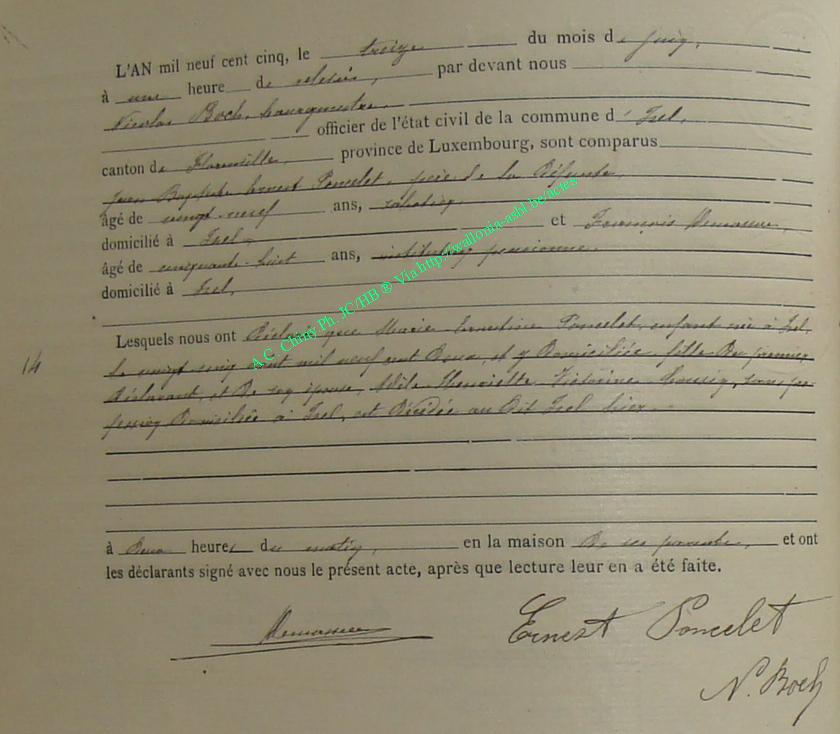 L'AN mil neuf cent cinq, le treize du mois de juin,
à une heure de relevée, par devant nous
Nicolas Boch, bourgmestre,
officier de l'état civil de la commune d'Izel,
canton de Florenville, province de Luxembourg, sont comparus
Jean Baptiste Ernest Poncelet, père de la défunte,
âgé de vingt-neuf ans,
domicilié à Izel, et François
âgé de cinquante-huit ans, instituteur pensionné,
domicilié à Izel,
Lesquels nous ont déclaré que Marie Ernestine Poncelet, enfant née à Izel,
le vingt cinq août mil neuf cent deux, et y domiciliée, fille du premier
déclarant, et de son épouse, Adèle Henriette Victorine sans pro-
fession domiciliée à Izel, est décédée au dit Izel hier
14
à deux heures du matin, en la maison de ses parents, et ont
les déclarants signé avec nous le présent acte, après que lecture leur en a été faite.
Ernest Poncelet
N. Boch
A.C. Chiny Ph. JC/HB ® Via http://wallonia-asbl.be/actes